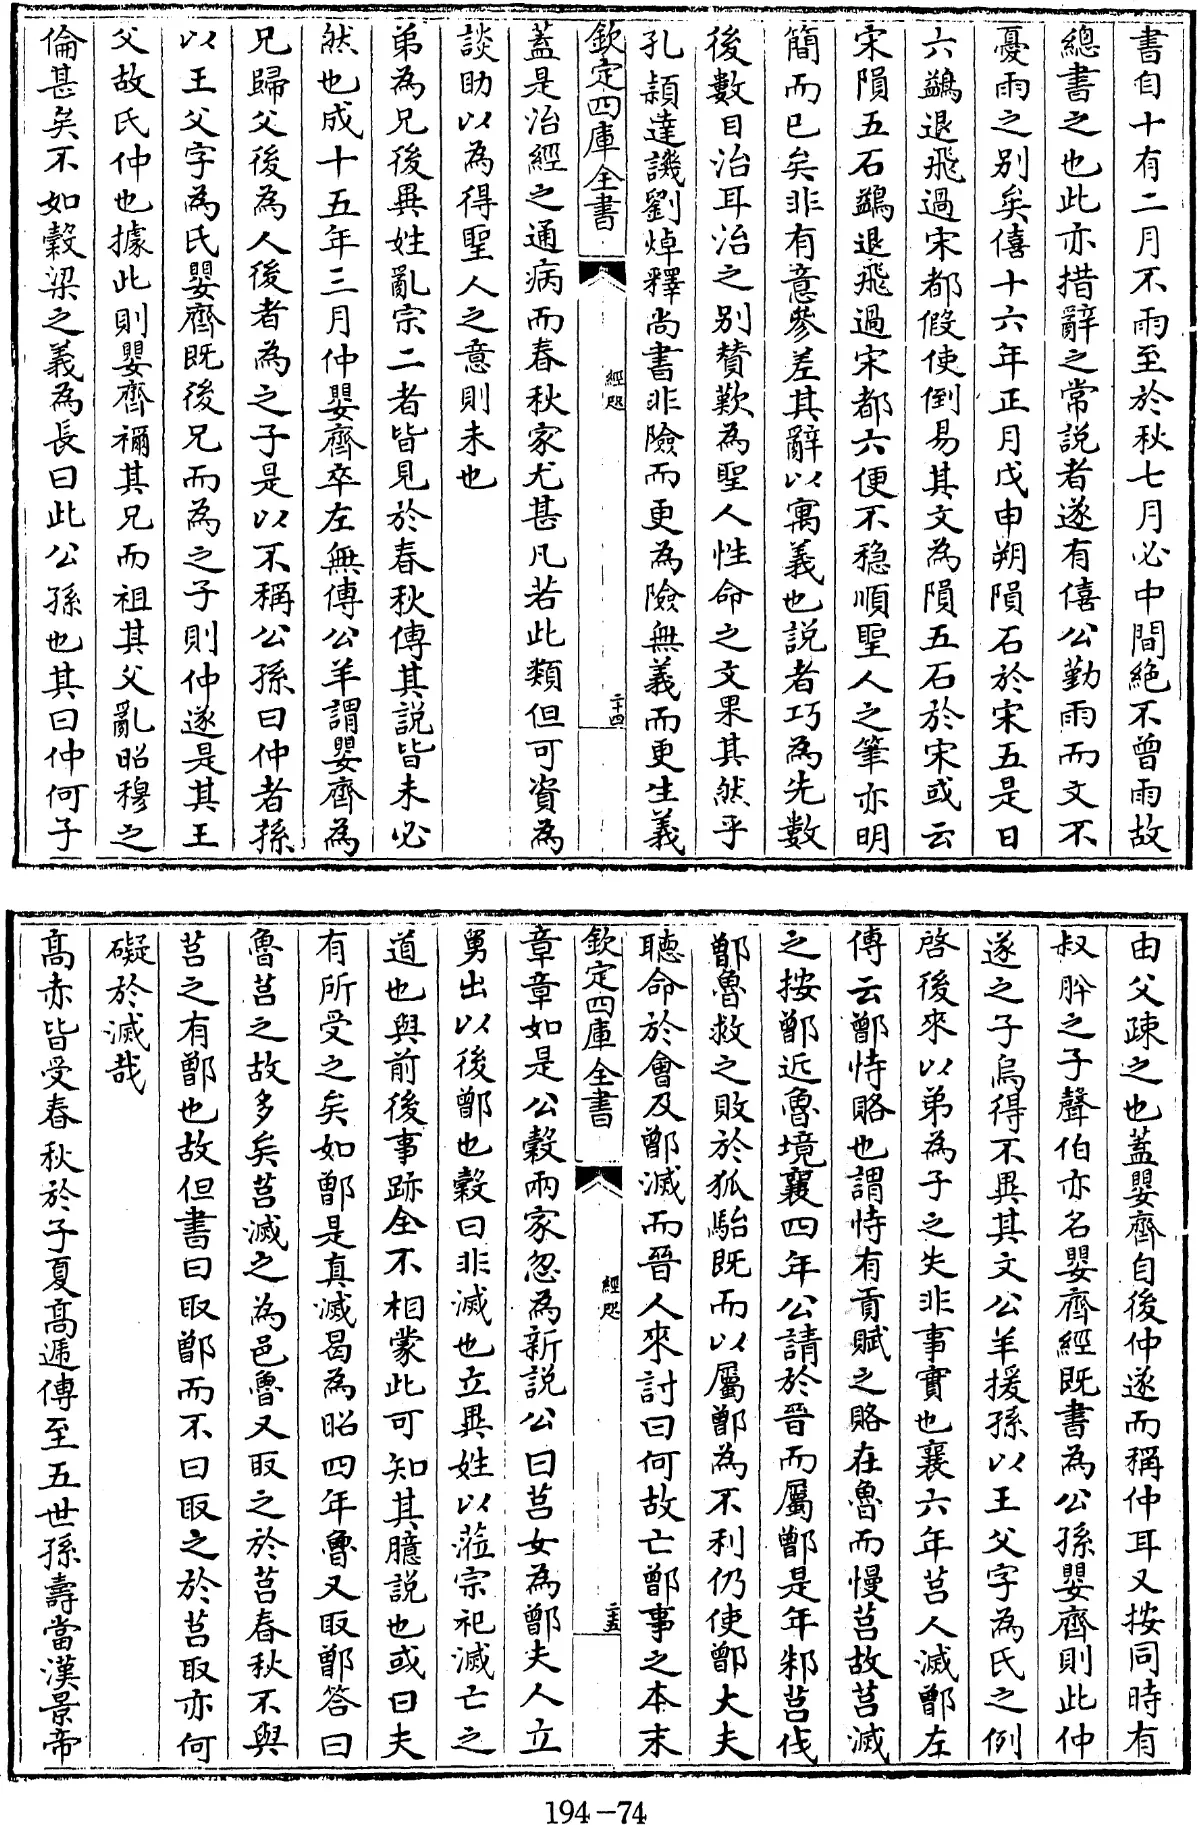 書自十有二月不雨至於秋七月必中間絶不曾雨故
總書之也此亦措辭之常説者遂有僖公勤雨而文不
憂雨之别矣僖十六年正月戊申朔隕石於宋五是日
六鷁退飛過宋都假使倒易其文為隕五石於宋或云
宋隕五石鷁退飛過宋都六便不穏順聖人之筆亦明
簡而已矣非有意參差其辭以寓義也説者巧為先數
後數目治耳治之别賛歎為聖人性命之文果其然乎
孔頴達譏劉焯釋尚書非險而更為險無義而更生義
欽定四庫全書
經咫
二十四
蓋是治經之通病而春秋家尤甚凡若此類但可資為
談助以為得聖人之意則未也
弟為兄後異姓亂宗二者皆見於春秋傳其説皆未必
然也成十五年三月仲嬰齊卒左無傳公羊謂嬰齊為
兄歸父後為人後者為之子是以不稱公孫曰仲者孫
以王父字為氏嬰齊既後兄而為之子則仲遂是其王
父故氏仲也據此則嬰齊禰其兄而祖其父亂昭穆之
倫甚矣不如穀梁之義為長曰此公孫也其曰仲何子
由父疎之也蓋嬰齊自後仲遂而稱仲耳又按同時有
叔肸之子聲伯亦名嬰齊經既書為公孫嬰齊則此仲
遂之子烏得不異其文公羊援孫以王父字為氏之例
啓後來以弟為子之失非事實也襄六年莒人滅鄫左
傳云鄫恃賂也謂恃有貢賦之賂在魯而慢莒故莒滅
之按鄫近魯境襄四年公請於晉而屬鄫是年邾莒伐
鄫魯救之敗於狐駘既而以屬鄫為不利仍使鄫大夫
聽命於會及鄫滅而晉人來討曰何故亡鄫事之本末
欽定四庫全書
經咫
二十五
章章如是公穀兩家忽為新説公曰莒女為鄫夫人立
舅出以後鄫也穀曰非滅也立異姓以蒞宗祀滅亡之
道也與前後事跡全不相蒙此可知其臆説也或曰夫
有所受之矣如鄫是真滅曷為昭四年魯又取鄫答曰
魯莒之故多矣莒滅之為邑魯又取之於莒春秋不與
莒之有鄫也故但書曰取鄫而不曰取之於莒取亦何
礙於滅哉
髙赤皆受春秋於子夏髙遞傳至五世孫壽當漢景帝
194-74